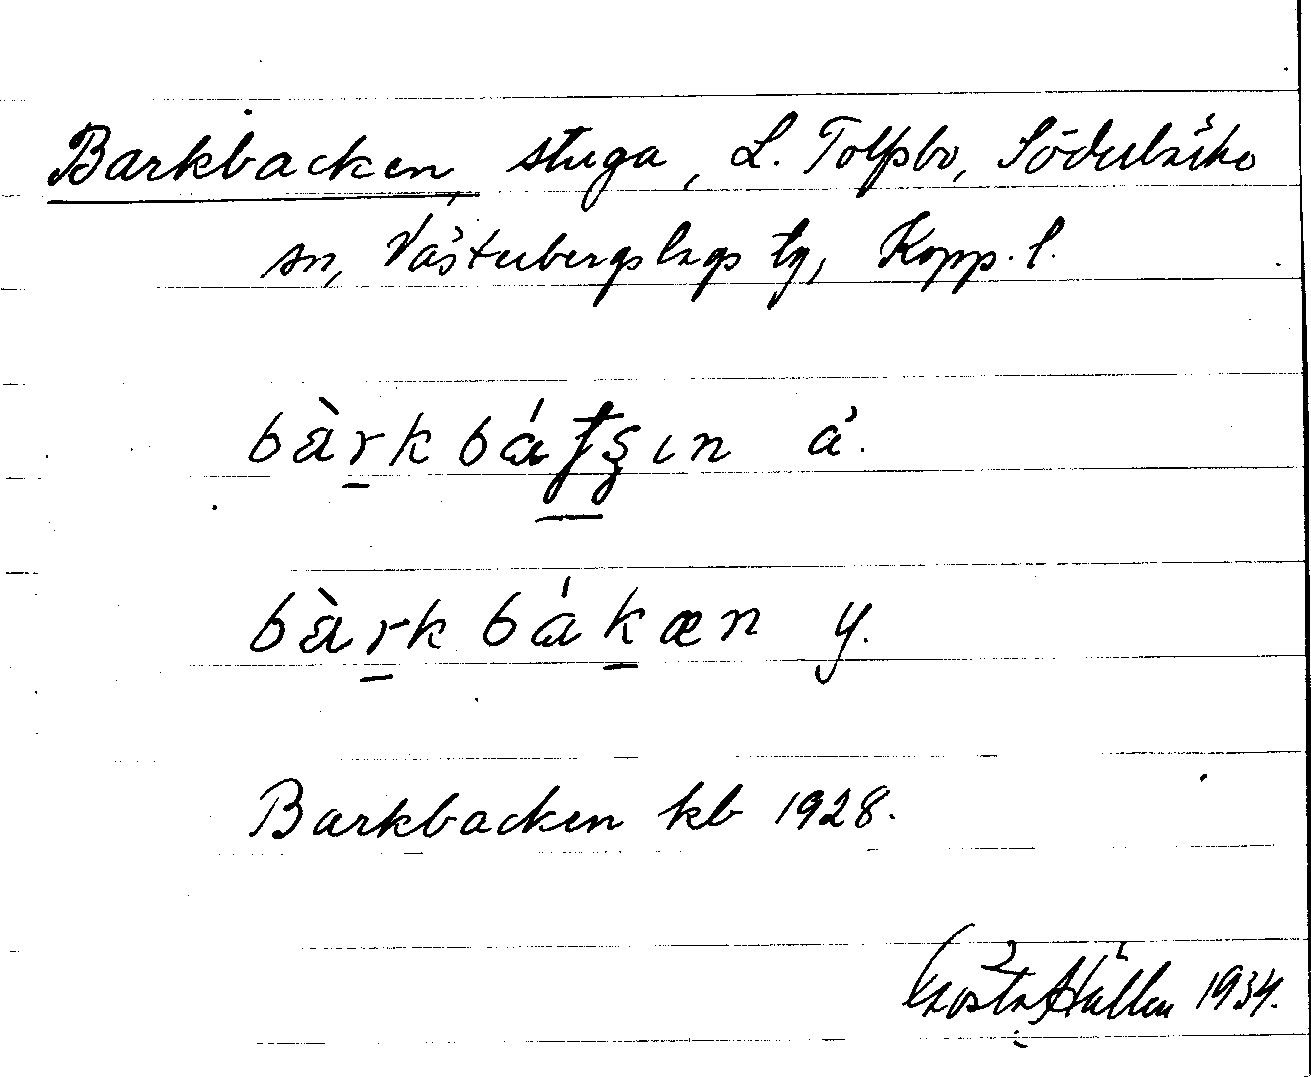 Barkbacken, stuga, L. Tolfsbo, Söderbärke
sn, Västerbergslags tg, Kopp. l.
bàrkbátʂın ä.
bàrkbákæn y.
Barkbacken kb 1928.
Gösta Hallén 1934.